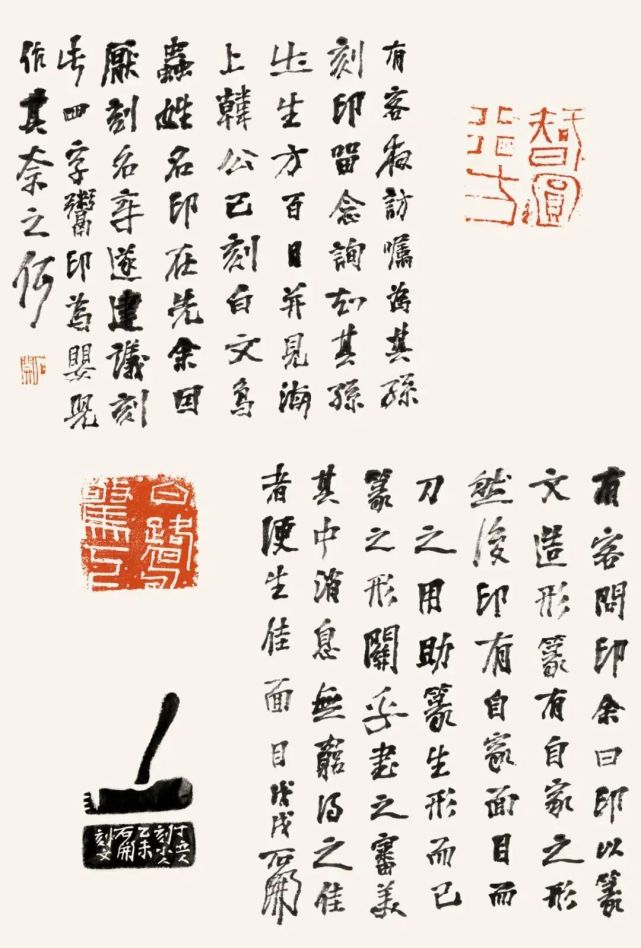 智圓行方
有客夜訪囑為其孫
刻印留念詢知其孫
出生方百日并見海
上韓公已刻白文鳥
蟲姓名印在先余因
厭刻名章遂建議刻
此四字鬻印為嬰兒
作其奈之何
石開
有客問印余曰印以篆
文造形篆有自家之形
然後印有自家面目而
刀之用助篆生形而已
篆之形關乎書之審美
其中消息無窮得之佳
者便生佳面目戊戌石開
乙未
石開
刻文